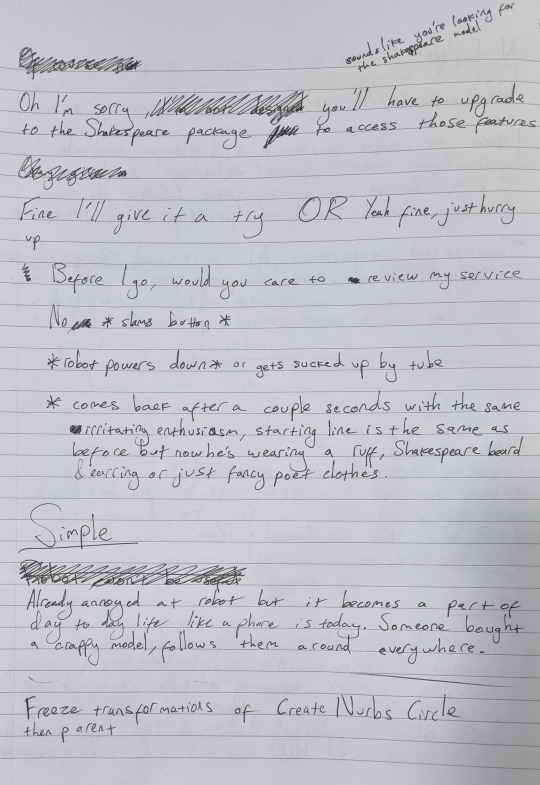 sounds like you're looking for
the shakespeare model
Oh I'm sorry, you'll have to upgrade
to the Shakespeare package to access those features
Fine I'll give it a try OR Yeah fine, just hurry
up
Before I go, would you care to review my service
No *slams button*
*robot powers down* or gets sucked up by tube
* comes back after a couple seconds with the same
irritating enthusiasm, starting line is the same as
before but now he's wearing a ruff, Shakespeare beard
& earring or just fancy poet clothes.
Simple
Already annoyed at robot but it becomes a part of
day to day life like a phone is today. Someone bought
a crappy model, follows them around everywhere.
Freeze transformations of Create Nurbs Circle
then parent